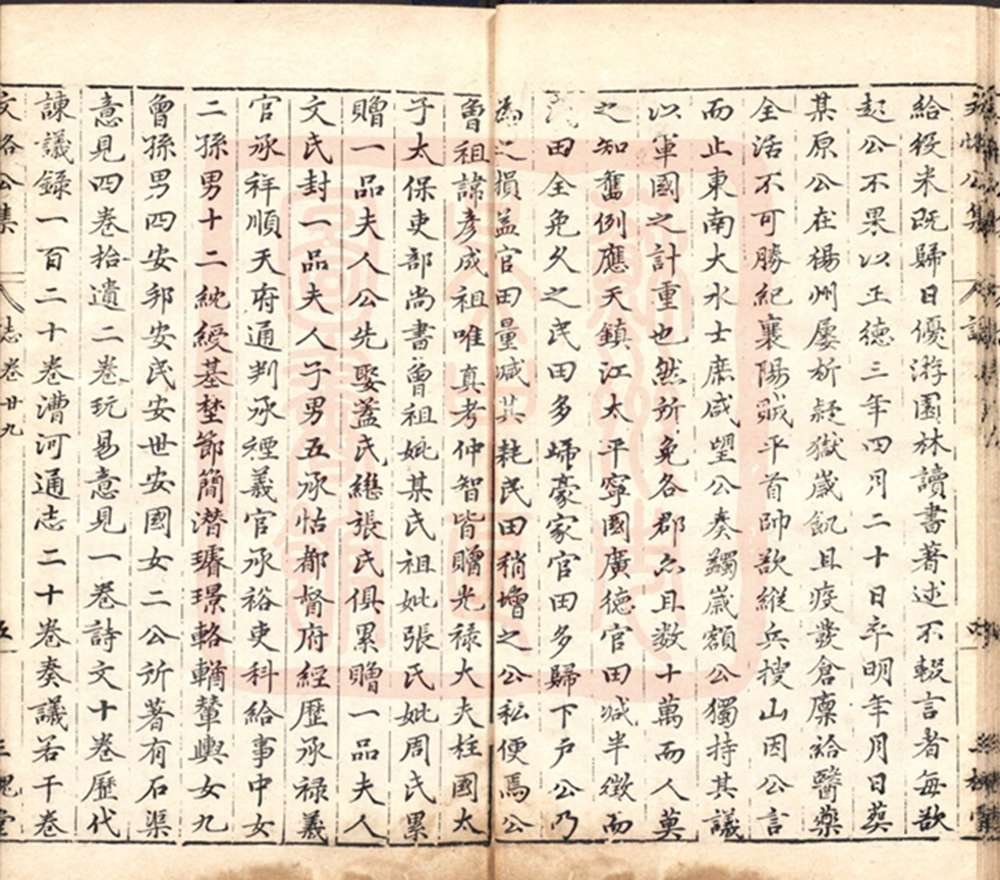 給役米既歸日優游園林讀書著述不輟言者每欲
起公不果以正德三年四月二十日卒明年月日葬
某原公在楊州屢析疑獄歲飢且疫發倉廪給醫藥
全活不可勝紀襄陽賊平首帥欲縱兵搜山因公言
而止東南大水士庶咸望公奏蠲歲額公獨持其議
以軍國之計重也然所免各郡亦且数十萬而人莫
之知舊例應天鎮江太平寧國廣德官田减半徵而
民田全免久之民田多歸豪家官田多歸下戶公乃
為之損益官田量减其耗民田稍增之公私便焉公
曾祖諱彦成祖唯真考仲智皆贈光禄大夫柱國太
子太保吏部尚書曾祖妣某氏祖妣張氏妣周氏累
贈一品夫人公先娶蓋氏繼張氏俱累贈一品夫人
文氏封一品夫人子男五承怙都督府經歷承禄義
官承祥順天府通判承禋義官承裕吏科給事中女
二孫男十二紞綬基埜節簡潜璿璟輅輶輦輿女九
曾孫男四安邦安民安世安國女二公所著有石渠
意見四卷拾遺二卷玩易意見一卷詩文十卷歷代
諫議錄一百二十卷漕河通志二十卷奏議若干卷
文恪公集 志卷廿九 五 三槐堂